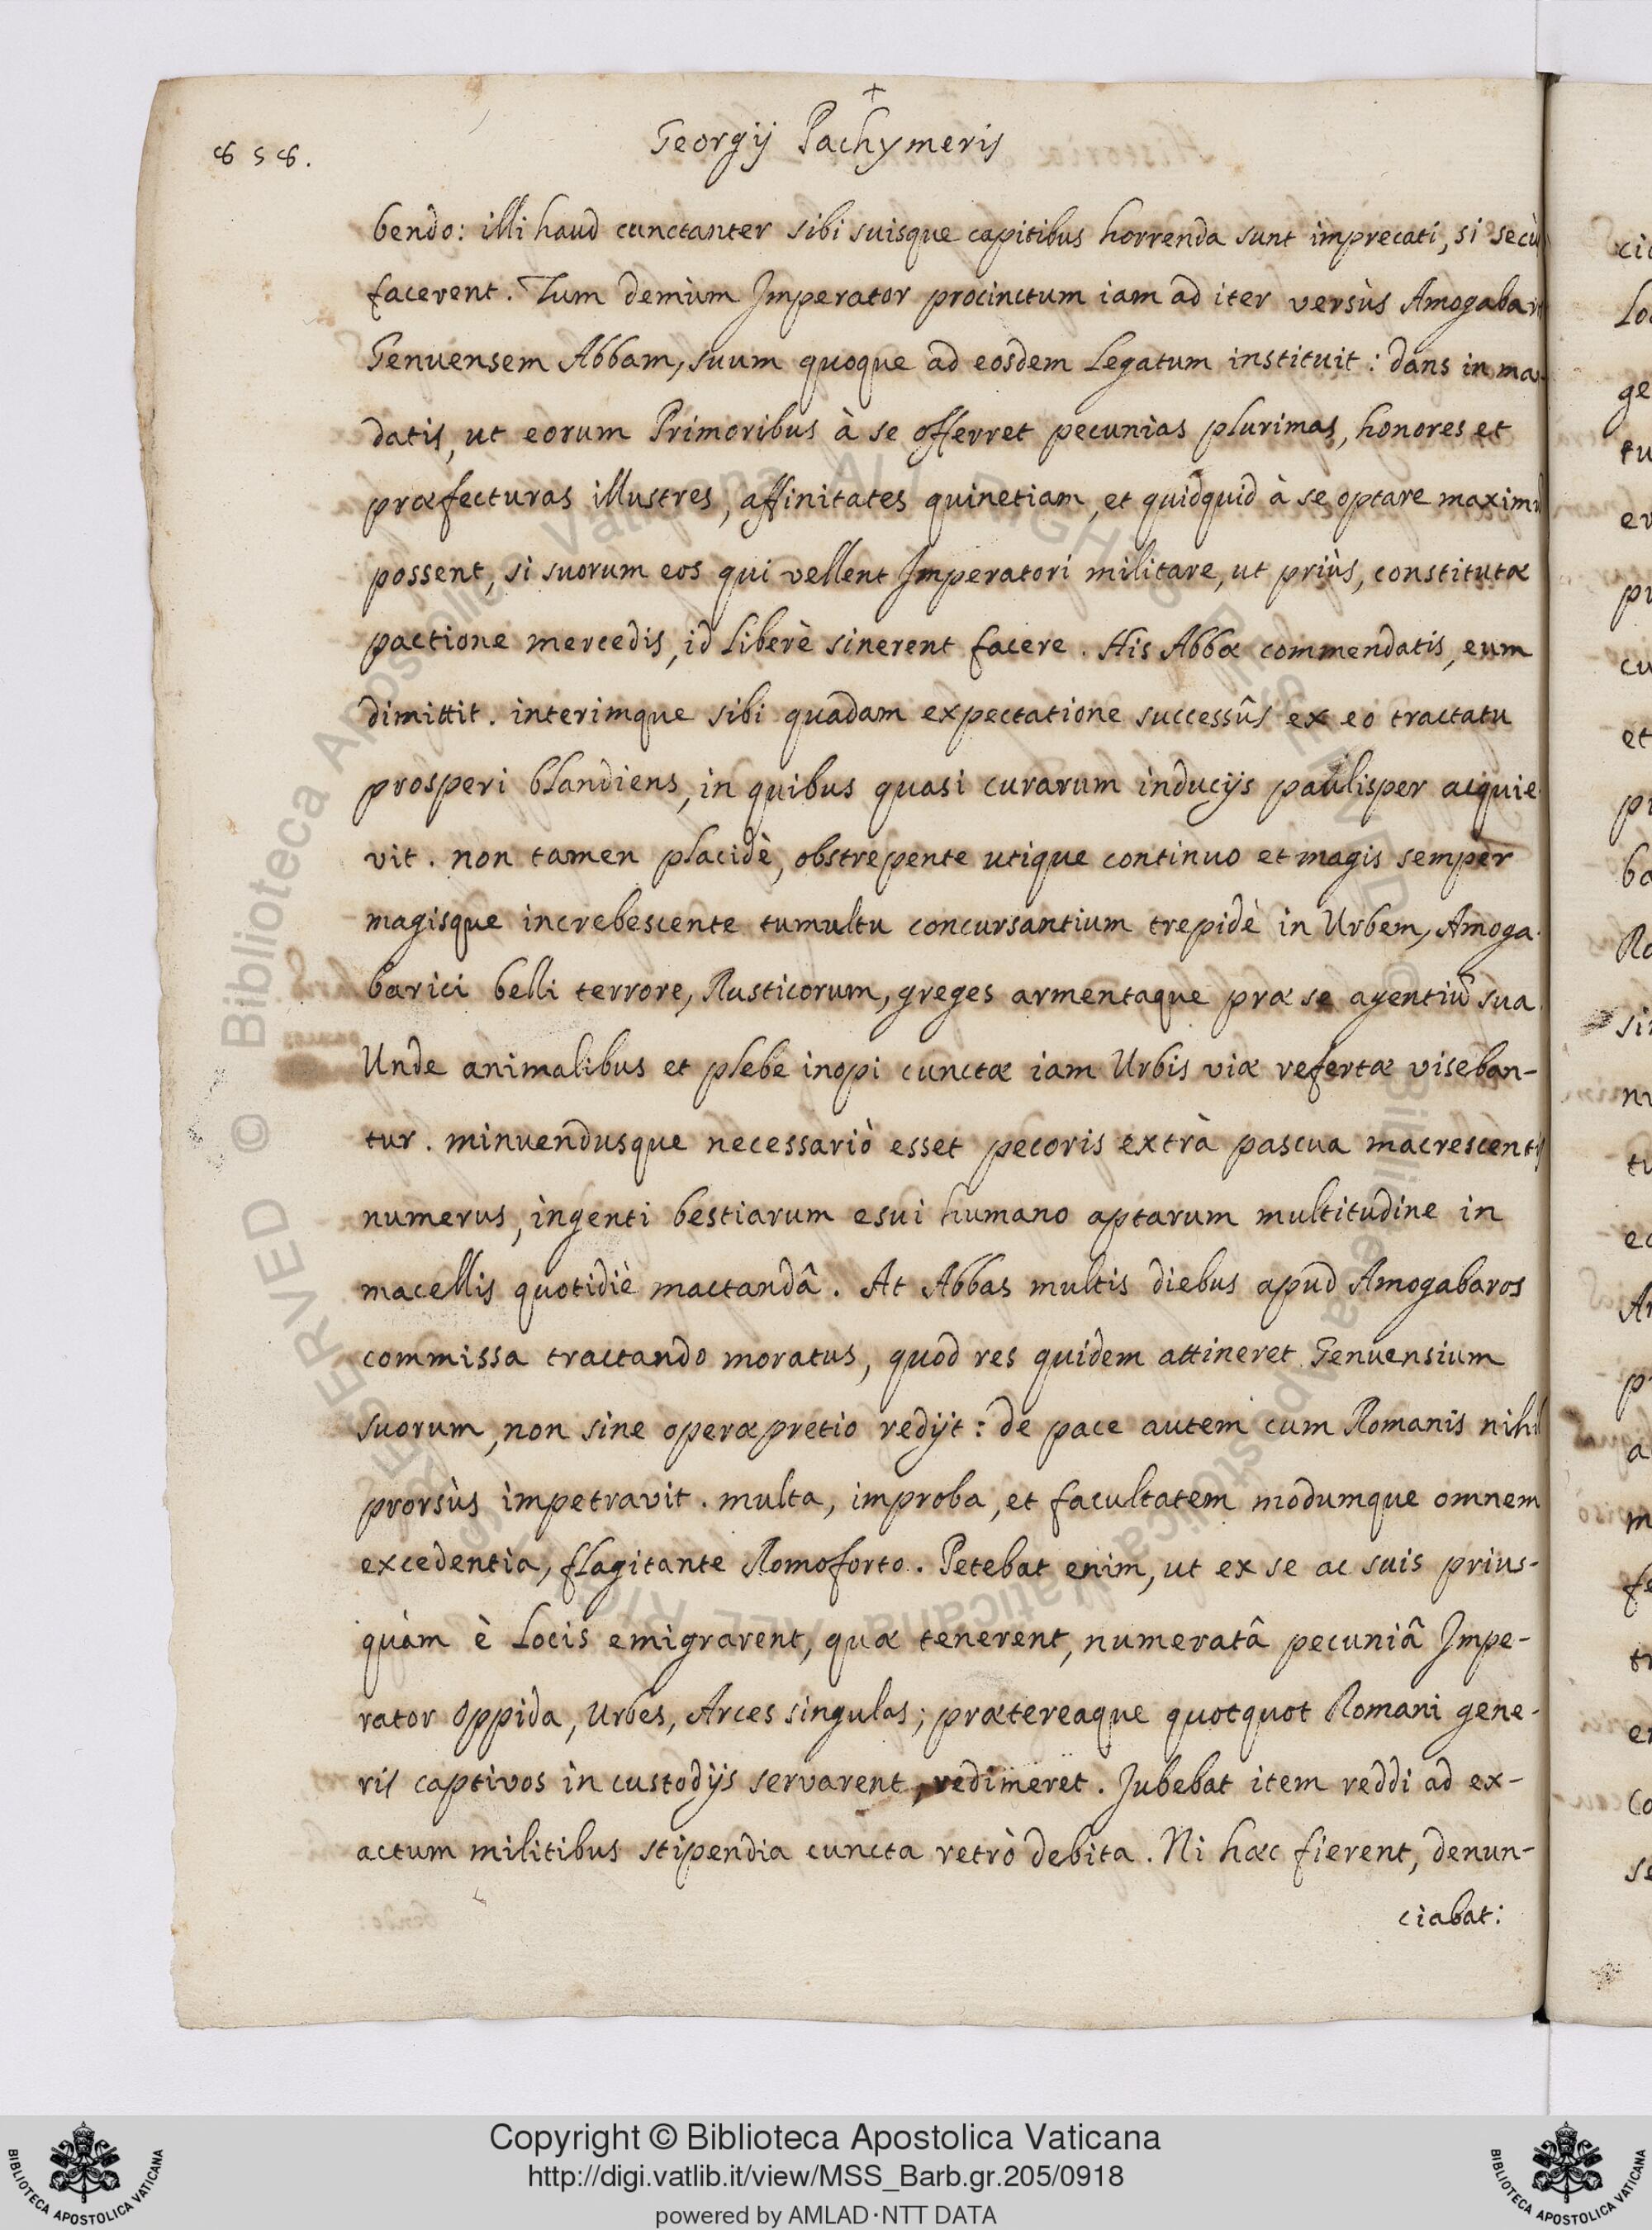 +
858.
Georgij Pachymeris
bendo: illi haud cunctanter sibi suisque capitibus horrenda sunt imprecati, si secù
facerent. Tum demùm Imperator procinctum iam ad iter versùs Amogabar
Genuensem Abbam, suum quoque ad eosdem Legatum instituit: dans in ma
datis, ut eorum Primoribus à se offerret pecunias plurimas, honores et
præfecturas illustres, affinitates quinetiam, et quidquid à se optare maxim
possent, si suorum eos qui vellent Imperatori militare, ut priùs, constitutæ
pactione mercedis, id liberè sinerent facere. His Abbæ commendatis, eum
dimittit. interimque sibi quadam expectatione successûs ex eo tractatu
prosperi blandiens, in quibus quasi curarum inducijs paulisper acquie
vit. non tamen placidè, obstrepente utique continuo et magis semper
magisque increbescente tumultu concursantium trepidè in Urbem, Amoga-
barici belli terrore, Rusticorum, greges armentaque præ se agentiū sua.
Unde animalibus et plebe inopi cunctæ iam Urbis viæ refertæ viseban-
tur. minuendusque necessariò esset pecoris extrà pascua macrescenti
numerus, ingenti bestiarum esui humano aptarum multitudine in
macellis quotidiè mactandâ. At Abbas multis diebus apud Amogabaros
commissa tractando moratus, quod res quidem attineret Genuensium
suorum, non sine operæpretio redijt: de pace autem cum Romanis nihil
prorsùs impetravit. multa, improba, et facultatem modumque omnem
excedentia, flagitante Romoforto. Petebat enim, ut ex se ac suis prius-
quàm è Locis emigrarent, quæ tenerent, numeratâ pecuniâ Impe-
rator Oppida, Urbes, Arces singulas; prætereaque quotquot Romani gene-
ris captivos in custodijs servarent, redimeret. Jubebat item reddi ad ex-
actum militibus stipendia cuncta retrò debita. Ni hæc fierent, denun-
ciabat:
Copyright © Biblioteca Apostolica Vaticana
http://digi.vatlib.it/view/MSS_Barb.gr.205/0918
powered by AMLAD·NTT DATA
BIBLIOTECA APOSTOLICA VATICANA
BIBLIOTECA APOSTOLICA VATICANA